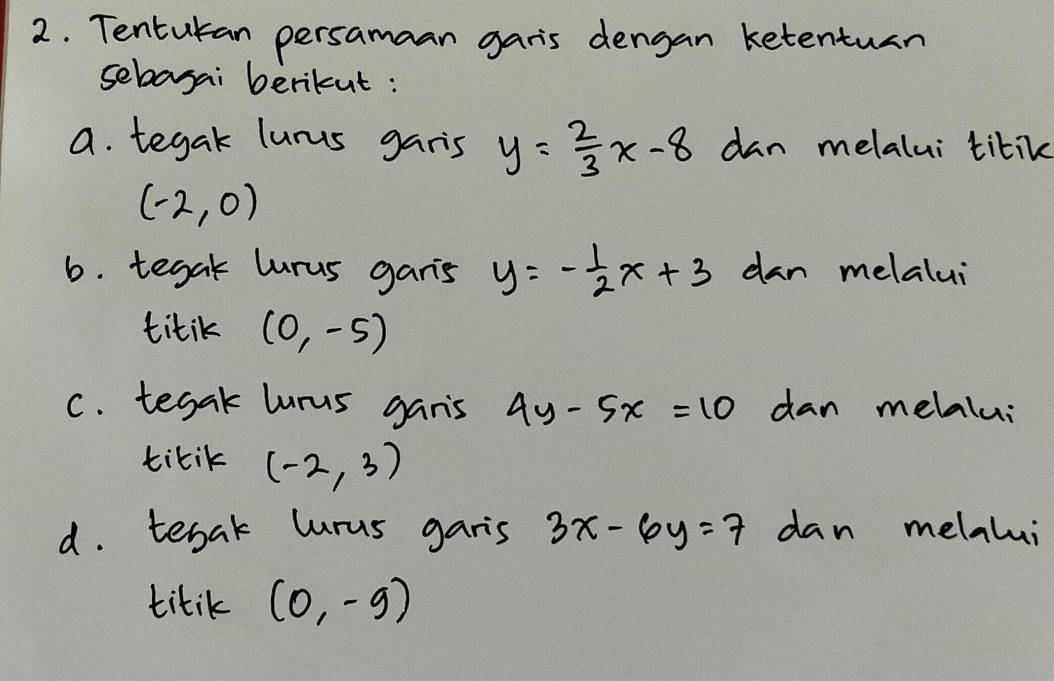 2. Tentukan persamaan garis dengan ketentuan
sebagai berikut :
a. tegak lurus garis y = 2/3 x - 8 dan melalui titik
(-2, 0)
b. tegak lurus garis y = - 1/2 x + 3 dan melalui
titik (0, -5)
c. tegak lurus garis 4y - 5x = 10 dan melalui
titik (-2, 3)
d. tegak lurus garis 3x - 6y = 7 dan melalui
titik (0, -9)